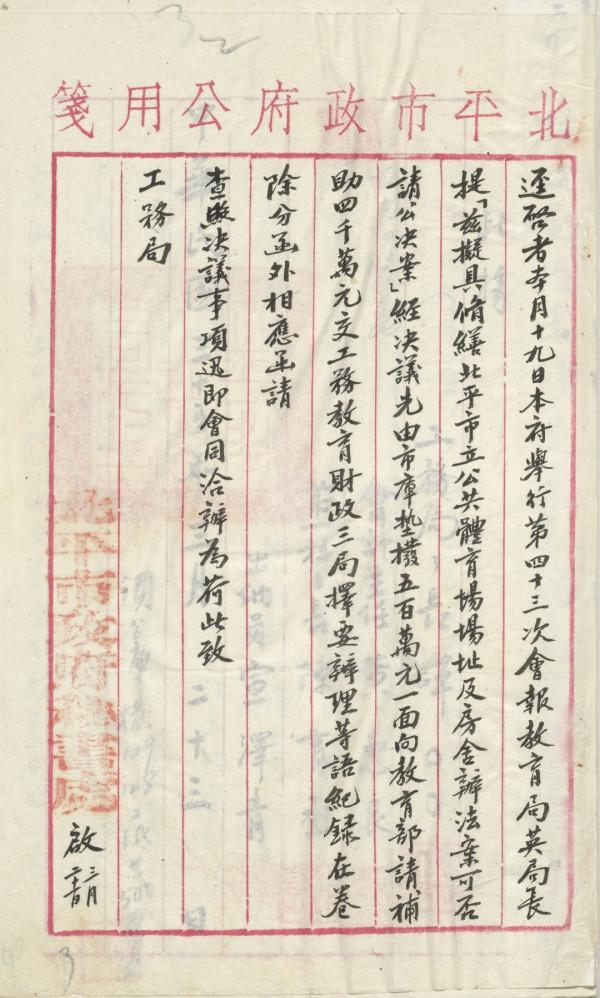 北平市政府公用箋
逕啓者本月十九日本府舉行第四十三次會報教育局英局長
提「茲擬具脩繕北平市立公共體育場場址及房舍辦法案可否
請公決案」經決議先由市庫墊撥五百萬元一面向教育部請補
助四千萬元交工務教育財政三局擇要辦理等語紀錄在卷
除分函外相應函請
查照決議事項迅即會同洽辦為荷此致
工務局
北平市政府秘書處
啟 三月